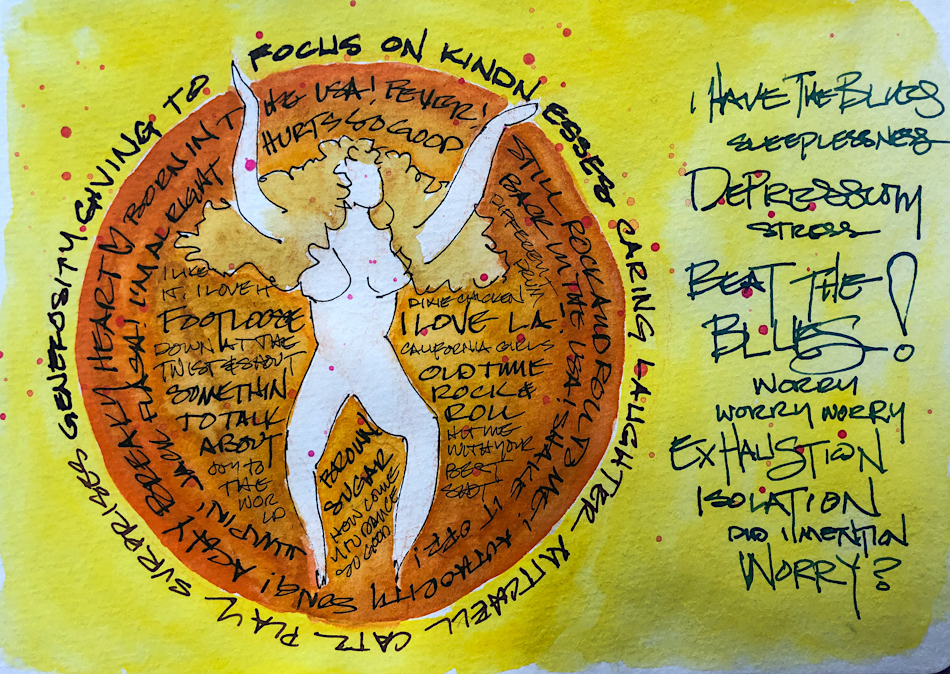 FOCUS ON KINDNESSES CARING LAUGHTER MITCHELL CATZ PLAY SURPRISES GENEROSITY GIVING TO
ACHY BREAKY HEART BORN IN THE USA! FEVER!
JUMPIN' JACK FLASH! I'M ALRIGHT
HURTS SO GOOD
STILL ROCK AND ROLL TO ME! AUTHORITY SONG!
BACK IN THE USA! SHAKE IT OFF!
I LIKE
IT, I LOVE IT
FOOTLOOSE
DOWN AT THE
TWIST & SHOUT
SOMETHIN
TO TALK
ABOUT
JOY TO
THE
WOR
LD
DIXIE CHICKEN
I LOVE LA
CALIFORNIA GIRLS
OLD TIME
ROCK &
ROLL
HIT ME
WITH YOUR
BEST
SHOT
BROWN
SUGAR
HOW COME
U DANCE
SO GOOD
I HAVE THE BLUES
SLEEPLESSNESS
DEPRESSION
STRESS
BEAT THE
BLUES!
WORRY
WORRY WORRY
EXHAUSTION
ISOLATION
DID I MENTION
WORRY?